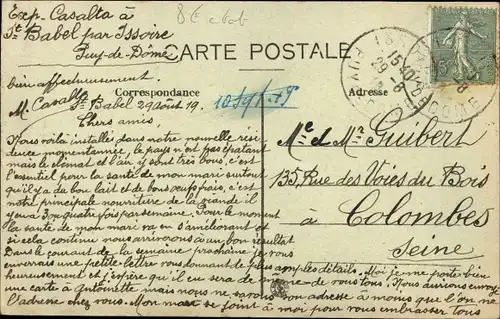 Exp. Casalta à
St Babel par Issoire
Puy-de-Dôme
CARTE POSTALE
bien affectueusement
M. Casalta
Correspondance
Adresse
St Babel 29 août 19.
Chers amis,
Nous voilà installés dans notre nouvelle rési
dence momentannée, le pays n'est pas épatant
mais le climat et l'air y sont très bons, c'est
l'essentiel pour la santé de mon mari surtout
qu'il y a du bon lait et de bons œufs frais, c'est
notre principale nourriture de la viande il
y en a 3 ou quatre fois par semaine. Pour le moment
la santé de mon mari va en s'améliorant et
si cela continu nous arriverons à un bon résultat
Dans le courant de la semaine prochaine je vous
enverrai une petite lettre vous donnant de plus amples détails. Moi je me porte bien
heureusement et j'espère qu'il en sera de même de vous tous. Nous aurions envoyé
une carte à Antoinette mais nous ne savons son adresse à moins que l'on ne
l'adresse chez vous. Mon mari se joint à moi pour vous embrasser tous
Me et Mr Guibert
135, Rue des Voies du Bois
à Colombes
Seine